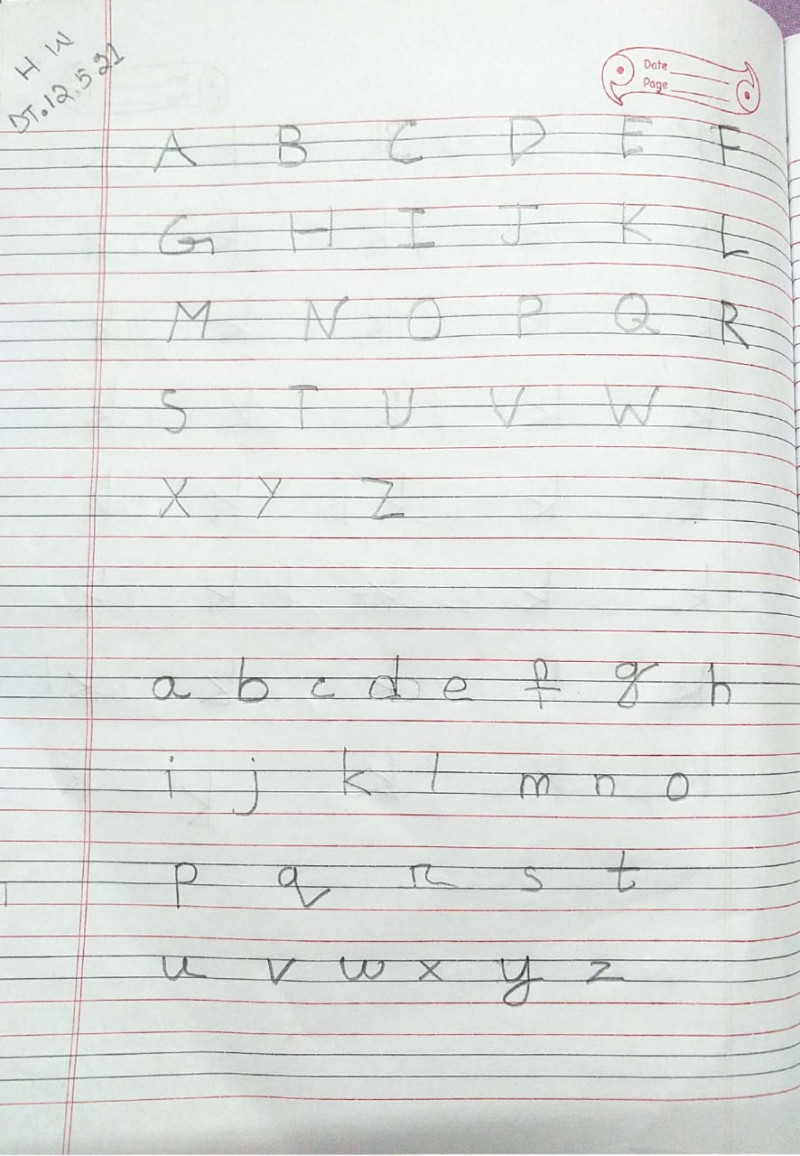 H W
DT. 12.5 21
Date
Page
A B C D E F
G H I J K L
M N O P Q R
S T U V W
X Y Z
a b c d e f g h
i j k l m n o
p q r s t
u v w x y z